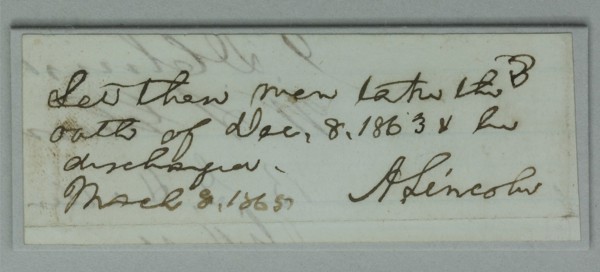 Let these men take the
oath of Dec. 8, 1863 & be
discharged.
March 8, 1865 A. Lincoln